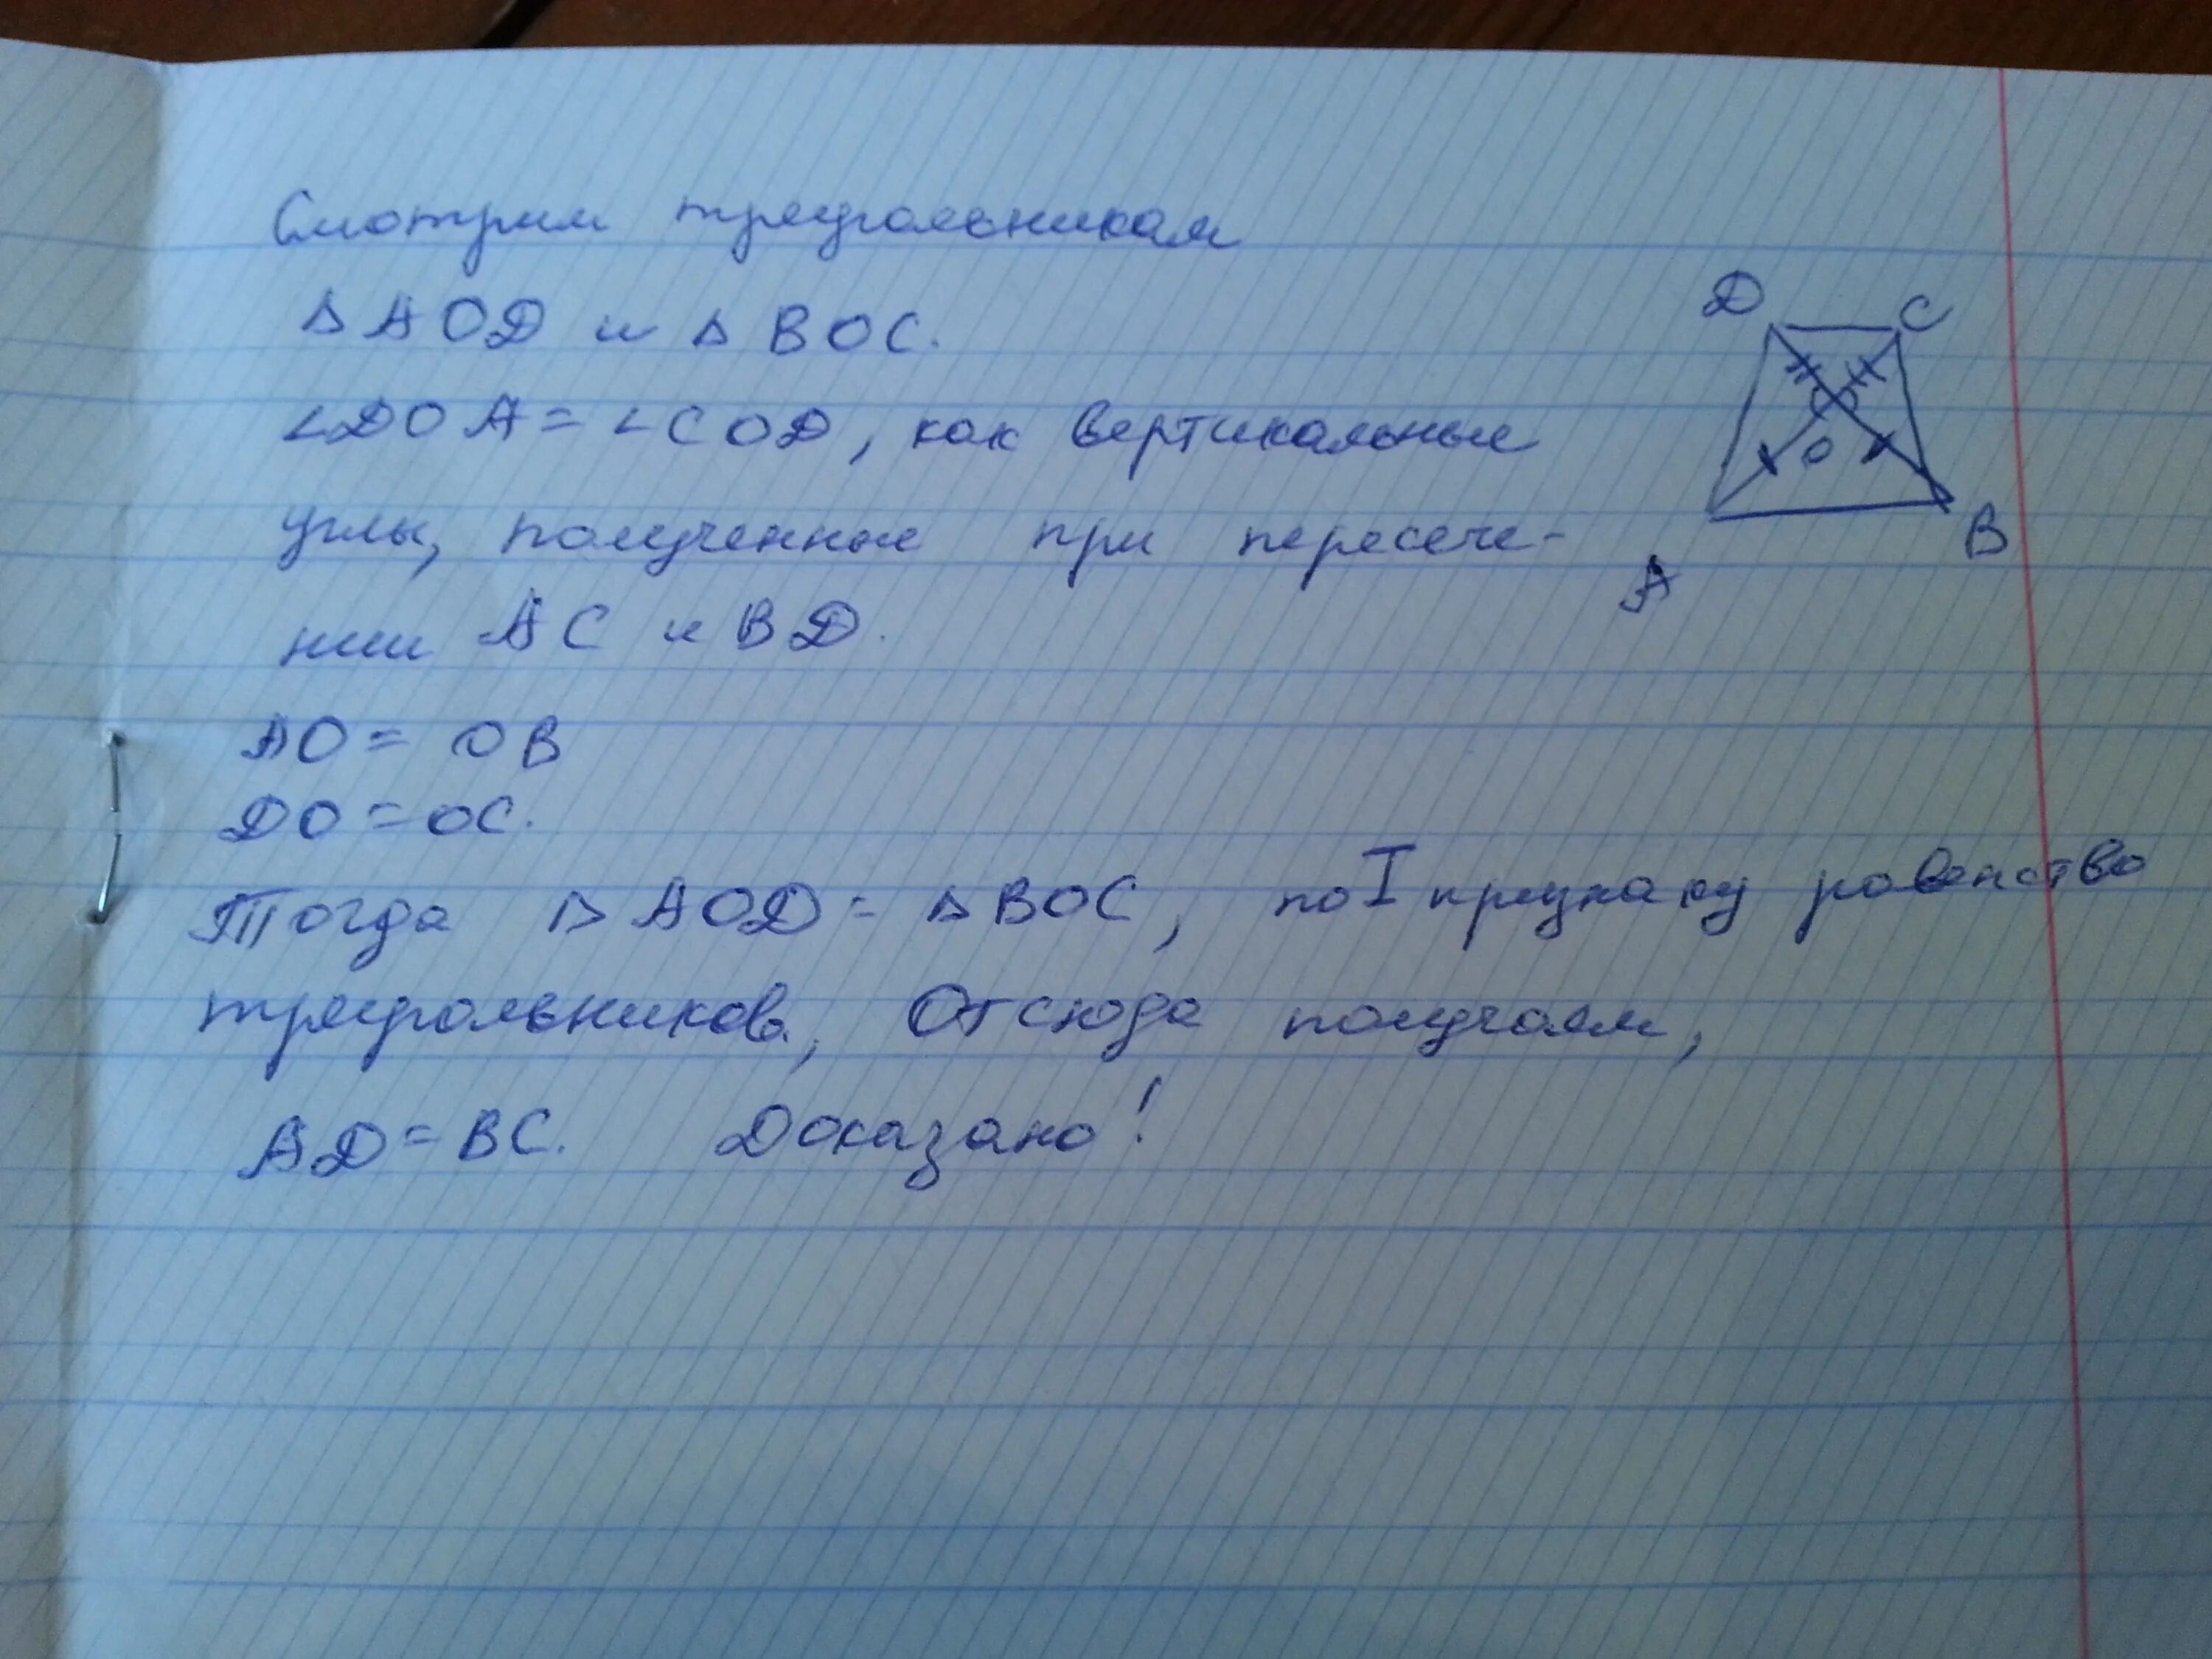 Смотрим треугольникам
△ AOD и △ BOC.
∠DOA = ∠COD, как вертикальные
углы, полученные при пересече-
нии AC и BD.
AO = OB
DO = OC.
Тогда △ AOD = △ BOC, по I признаку равенство
треугольников, Отсюда получаем,
AD = BC. Доказано!
D C
O
A B